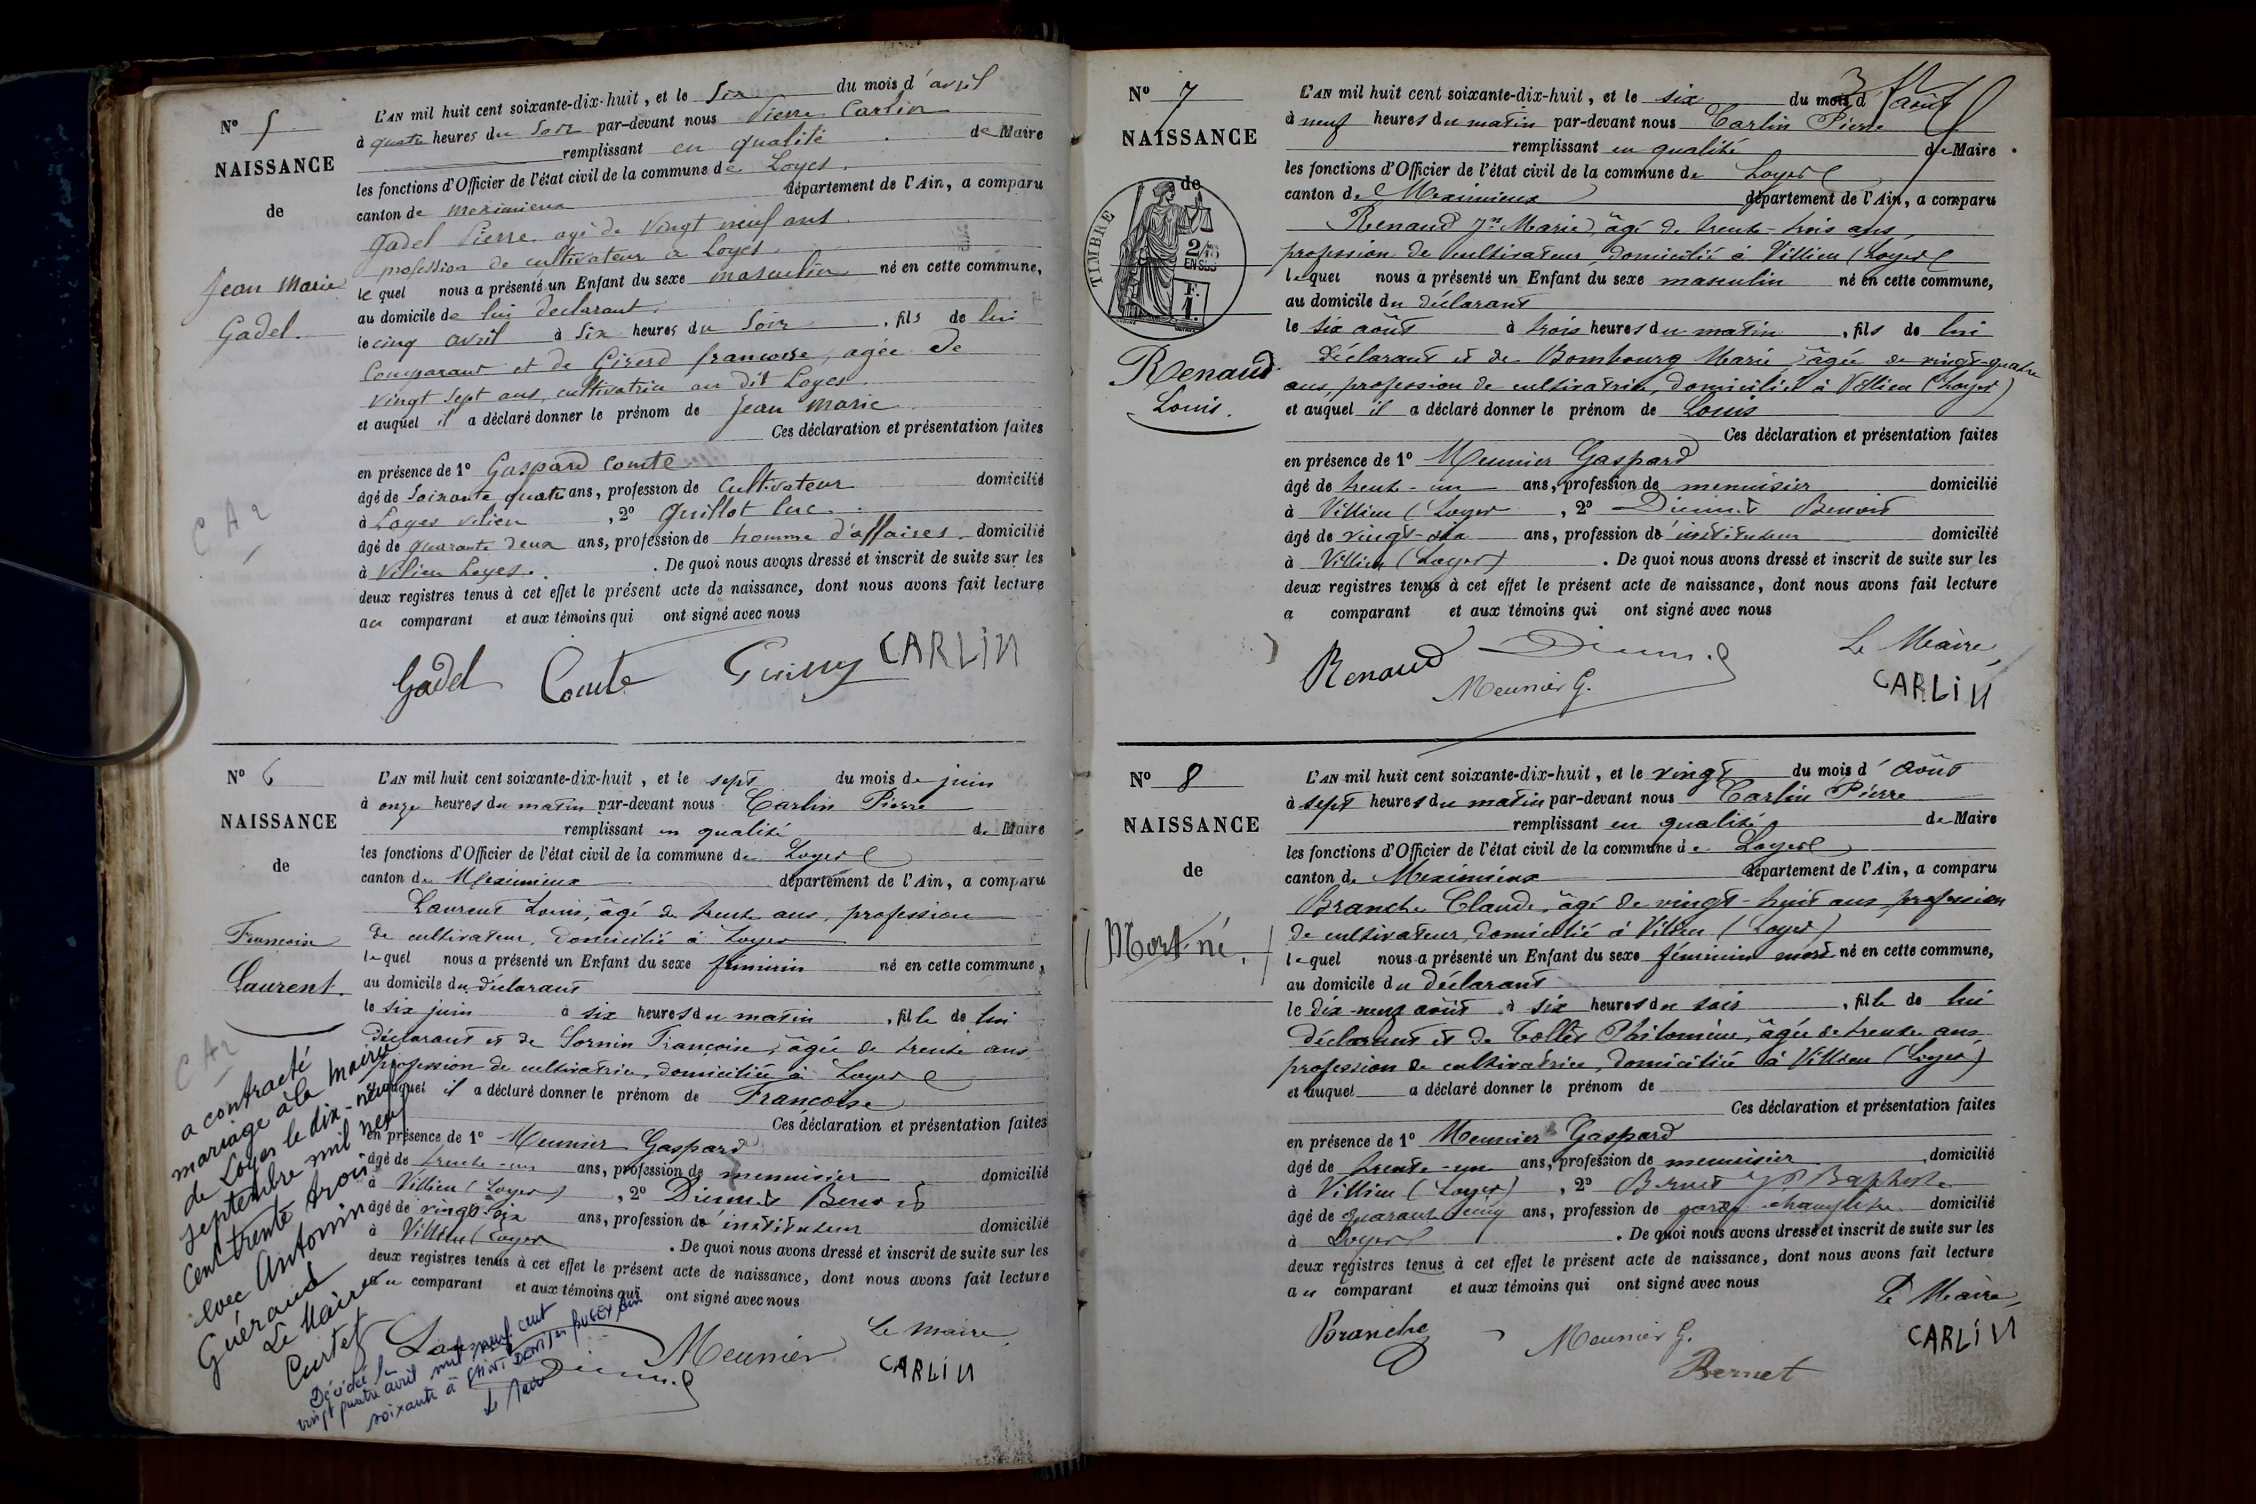 N° 5
NAISSANCE
de
Jean Marie
Gadel.
L'AN mil huit cent soixante-dix-huit, et le Six du mois d'avril
à quatre heures du Soir par-devant nous Pierre Carlin
remplissant en qualité de Maire
les fonctions d'Officier de l'état civil de la commune de Loyes.
canton de meximieux département de l'Ain, a comparu
Gadel Pierre agé de Vingt neuf ans
profession de cultivateur a Loyes.
le quel nous a présenté un Enfant du sexe masculin né en cette commune,
au domicile de lui declarant.
le cinq avril à Six heures du Soir, fils de lui
Comparant et de Girerd francoise, agée de
Vingt Sept ans, cultivatrice au dit Loyes.
et auquel il a déclaré donner le prénom de Jean Marie
Ces déclaration et présentation faites
en présence de 1° Gaspard Comte
âgé de Soixante quatre ans, profession de Cultivateur domicilié
à Loyes vilieu, 2° Guillot luc.
âgé de quarante deux ans, profession de homme d'affaires. domicilié
à Vilieu Loyes. . De quoi nous avons dressé et inscrit de suite sur les
deux registres tenus à cet effet le présent acte de naissance, dont nous avons fait lecture
au comparant et aux témoins qui ont signé avec nous
Gadel Comte CARLIN
N° 6
NAISSANCE
de
Francoise
Laurent.
L'AN mil huit cent soixante-dix-huit, et le sept du mois de juin
à onze heures du matin par-devant nous Carlin Pierre
remplissant en qualité de Maire
les fonctions d'Officier de l'état civil de la commune de Loyes
canton de Meximieux département de l'Ain, a comparu
Laurent Louis, âgé de trente ans, profession
de cultivateur, domicilié à Loyes
lequel nous a présenté un Enfant du sexe féminin né en cette commune,
au domicile du déclarant
le six juin à six heures du matin, fille de lui
déclarant et de Sornin Françoise, âgée de trente ans
profession de cultivatrice, domiciliée à Loyes
et auquel il a déclaré donner le prénom de Francoise
Ces déclaration et présentation faites
en présence de 1° Meunier Gaspard
âgé de trente-un ans, profession de menuisier domicilié
à Villieu (Loyes), 2° Benoit
âgé de vingt-six ans, profession d'instituteur domicilié
à Villieu (Loyes . De quoi nous avons dressé et inscrit de suite sur les
deux registres tenus à cet effet le présent acte de naissance, dont nous avons fait lecture
au comparant et aux témoins qui ont signé avec nous
Le Maire
Meunier
CARLIN
a contracté
mariage à la mairie
de Loyes le dix-neuf
septembre mil neuf
cent trente trois
avec Antonin
Guéraud
Le Maire
Curtet
Décédée le
vingt quatre avril mil neuf cent
soixante à SAINT DENIS en BUGEY Ain
Le Maire
N° 7
NAISSANCE
de
TIMBRE
Renaud
Louis.
L'AN mil huit cent soixante-dix-huit, et le six du mois d'août
à neuf heures du matin par-devant nous Carlin Pierre
remplissant en qualité de Maire
les fonctions d'Officier de l'état civil de la commune de Loyes
canton de Meximieux département de l'Ain, a comparu
Renaud Jn Marie, âgé de trente-trois ans,
profession de cultivateur, domicilié à Villieu (Loyes
lequel nous a présenté un Enfant du sexe masculin né en cette commune,
au domicile du déclarant
le six août à trois heures du matin, fils de lui
déclarant et de Bombourg Marie, âgée de vingt-quatre
ans, profession de cultivatrice, domiciliée à Villieu (Loyes)
et auquel il a déclaré donner le prénom de Louis
Ces déclaration et présentation faites
en présence de 1° Meunier Gaspard
âgé de trente-un ans, profession de menuisier domicilié
à Villieu (Loyes, 2° Benoit
âgé de vingt-six ans, profession d'instituteur domicilié
à Villieu (Loyes) . De quoi nous avons dressé et inscrit de suite sur les
deux registres tenus à cet effet le présent acte de naissance, dont nous avons fait lecture
a comparant et aux témoins qui ont signé avec nous
Renaud Le Maire,
Meunier G. CARLIN
N° 8
NAISSANCE
de
Mort-né.
L'AN mil huit cent soixante-dix-huit, et le vingt du mois d'Août
à sept heures du matin par-devant nous Carlin Pierre
remplissant en qualité de Maire
les fonctions d'Officier de l'état civil de la commune de Loyes
canton de Meximieux département de l'Ain, a comparu
Branche Claude, âgé de vingt-huit ans profession
de cultivateur, domicilié à Vilieu (Loyes)
lequel nous a présenté un Enfant du sexe féminin mort né en cette commune,
au domicile du déclarant
le dix-neuf août à six heures du soir, fille de lui
déclarant et de Tollet Philomène, âgée de trente ans
profession de cultivatrice, domiciliée à Villieu (Loyes)
et auquel a déclaré donner le prénom de
Ces déclaration et présentation faites
en présence de 1° Meunier Gaspard
âgé de trente-un ans, profession de menuisier domicilié
à Villieu (Loyes), 2° Bernet Jn Baptiste
âgé de quarante cinq ans, profession de garde champêtre domicilié
à Loyes . De quoi nous avons dressé et inscrit de suite sur les
deux registres tenus à cet effet le présent acte de naissance, dont nous avons fait lecture
au comparant et aux témoins qui ont signé avec nous
Le Maire,
Branche Meunier G. CARLIN
Bernet